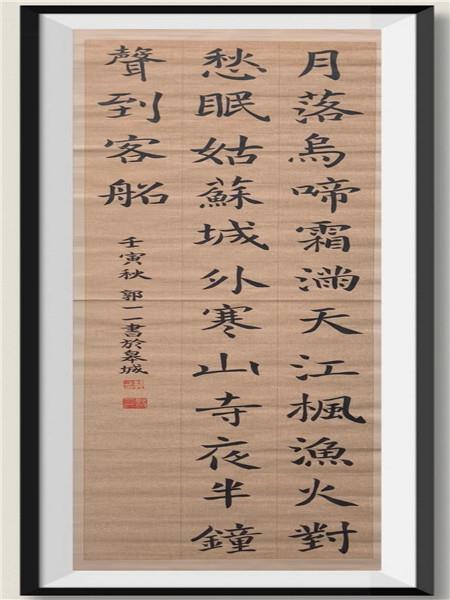 月落烏啼霜滿天江楓漁火對
愁眠姑蘇城外寒山寺夜半鐘
聲到客船
壬寅秋 郭一書於皋城